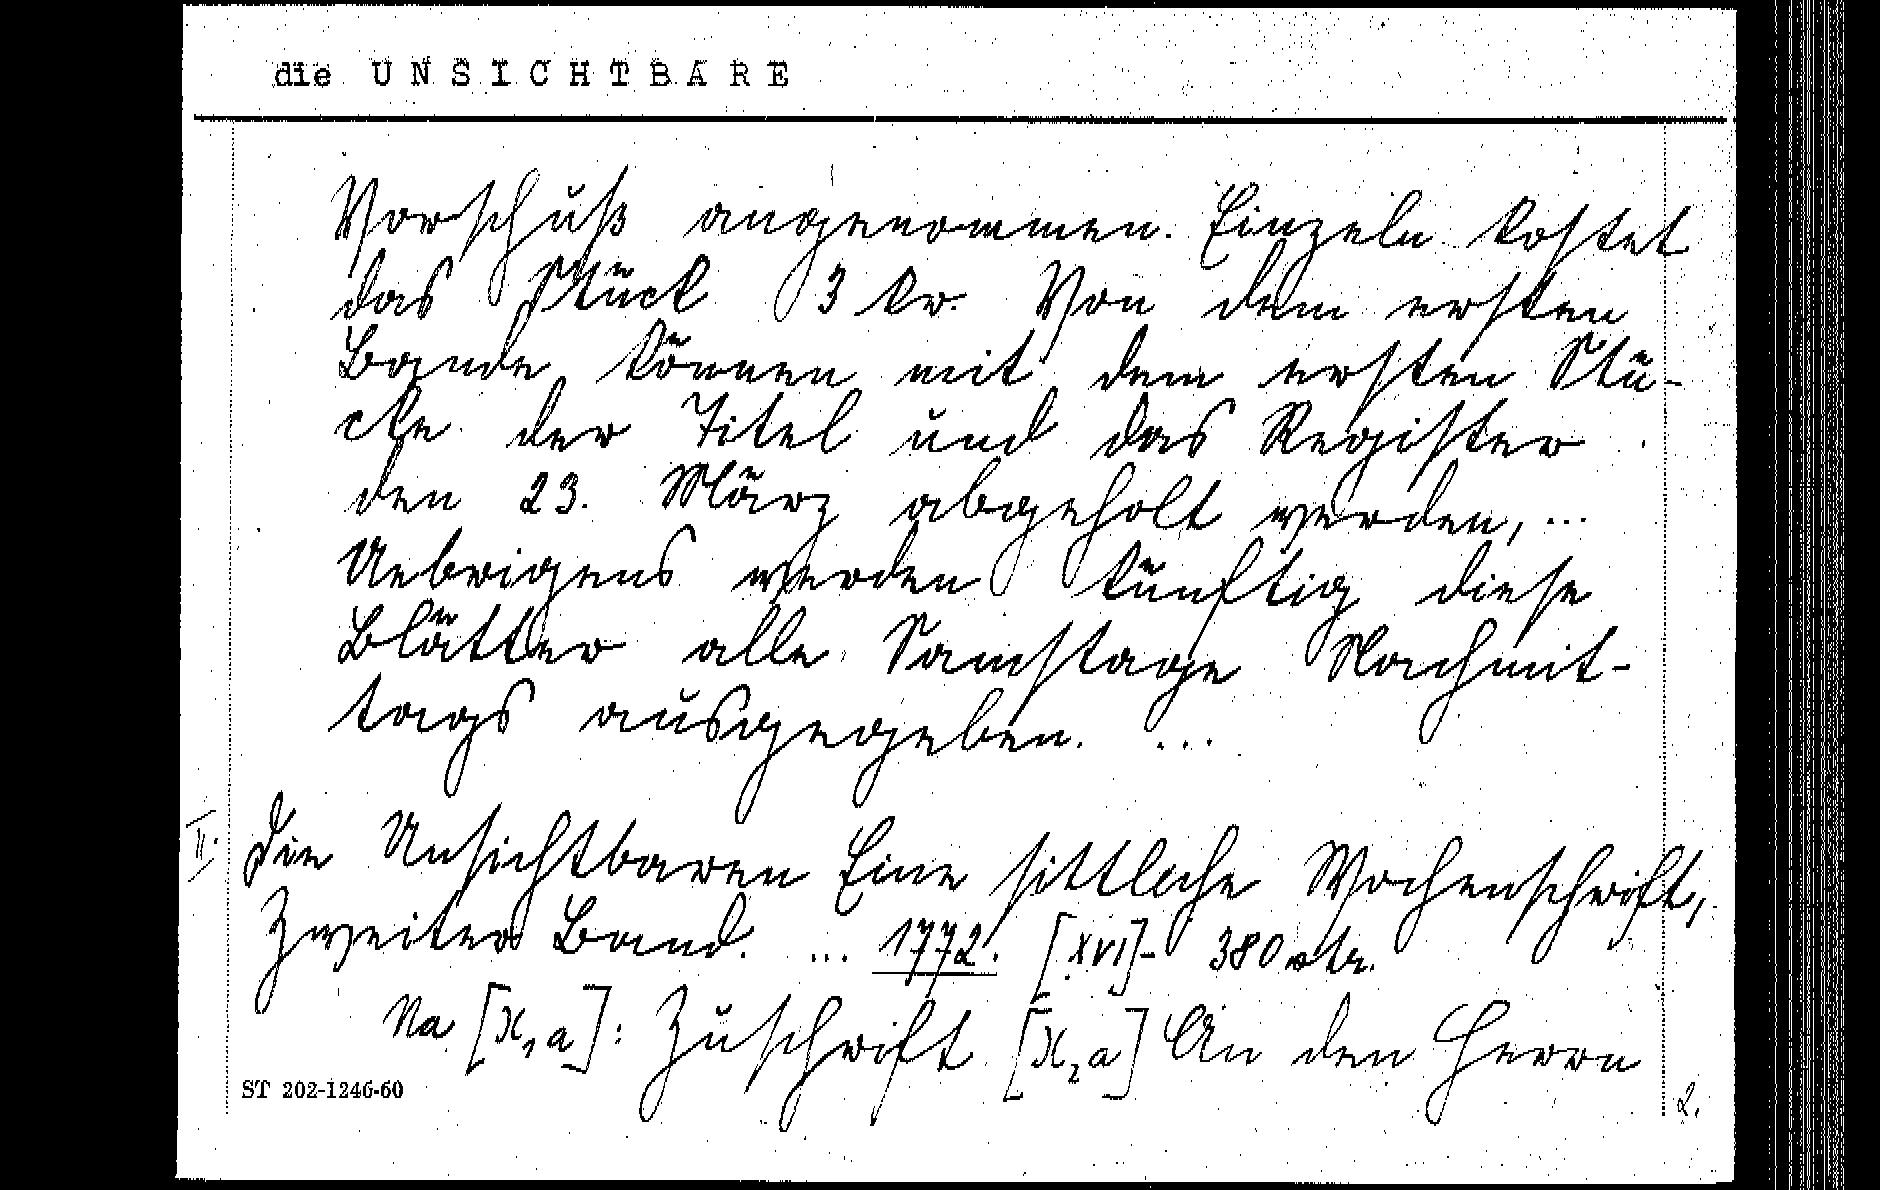 die UNSICHTBARE
Vorschuß angenommen. Einzeln kostet
das Stück 3 kr. Von dem ersten
Bande können mit dem ersten Stü-
cke der Titel und das Register
den 23. März abgeholt werden, ...
Uebrigens werden künftig diese
Blätter alle Samstage Nachmit-
tags ausgegeben. ...
II. Die Unsichtbaren Eine sittliche Wochenschrift,
Zweiter Band. ... 1772. [XVI]- 380 str.
Na [X1a]: Zuschrift [X2a] An den Herrn
ST 202-1246-60
2.